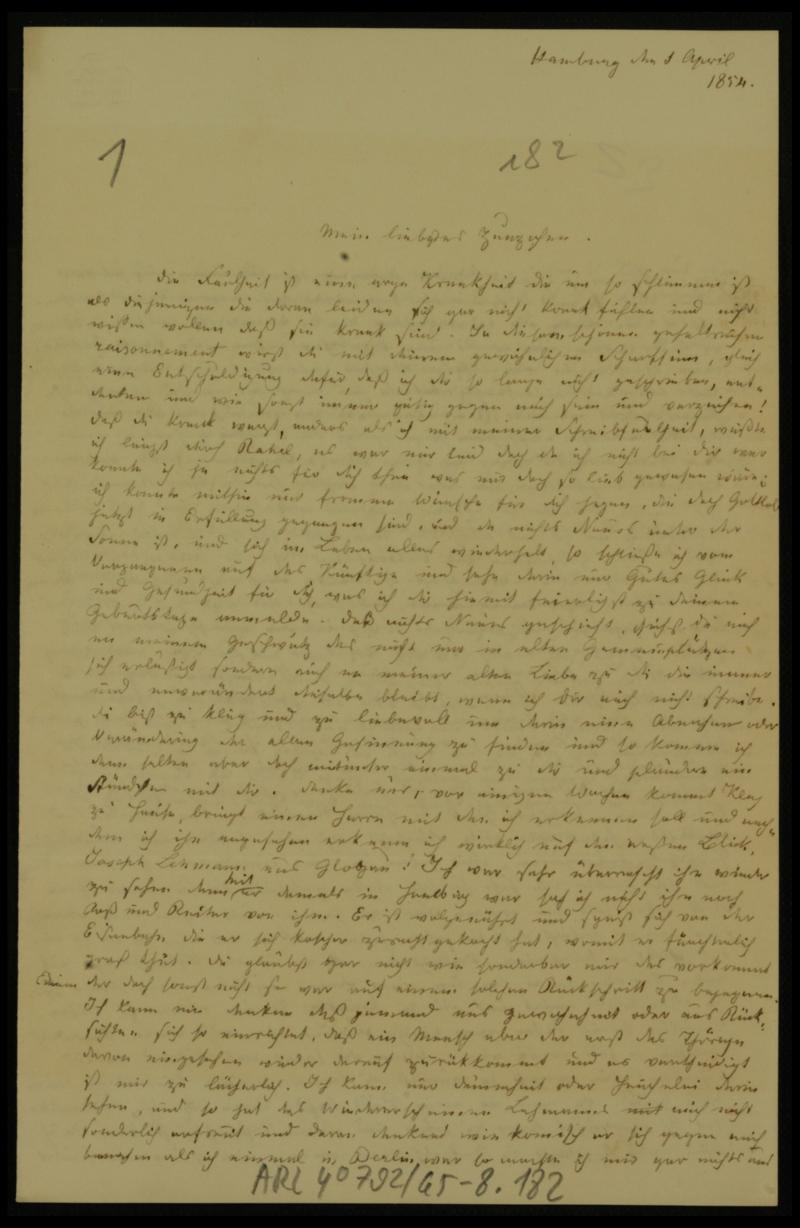 Hamburg den 1 April
1854.
1
182
Mein liebstes Zunzchen.
Die Faulheit ist eine arge Krankheit die um so schlimmer ist
als diejenigen die daran leiden sich gar nicht krank fühlen und nicht
wissen wollen daß sie krank sind. In diesem schönen gehaltreichen
raisonnement wirst du mit deinem gewöhnlichen Scharfsinn, gleich
eine Entschuldigung dafür, daß ich dir so lange nicht geschrieben, ent-
decken und wie sonst immer gütig gegen mich sein und verzeihen!
daß du krank warst, anders als ich mit meiner Schreibfaulheit, wußte
ich längst durch Rahel, es war mir leid doch da ich nicht bei dir war
konnte ich ja nichts für dich thun was mir doch so lieb gewesen wäre;
ich konnte mithin nur fromme Wünsche für dich hegen, die doch Gottlob
jetzt in Erfüllung gegangen sind. Und da nichts Neues unter der
Sonne ist, und sich im Leben alles wiederholt, so schließe ich vom
Vergangenen auf das Künftige und sehe darin nur Gutes Glück
und Gesundheit für dich, was ich dir hiemit feierlichst zu deinem
Geburtstage anmelde. Daß nichts Neues geschieht, siehst du auch
an meinem Geschwätz das nicht nur in alten Gemeinplätzen
sich erlustigt sondern auch an meiner alten Liebe zu dir die immer
und unverändert dieselbe bleibt, wenn ich dir auch nicht schreibe.
du bist zu klug und zu liebevoll um darin eine Abnahme oder
Veränderung der alten Gesinnung zu finden und so komme ich
denn selten aber doch mitunter einmal zu dir und plaudere ein
Stündchen mit dir. denke dir, vor einigen Wochen kommt Kley
zu Hause, bringt einen Herrn mit den ich erkennen soll und nach-
dem ich ihn angesehen erkenne ich wirklich auf den ersten Blick,
Joseph Lehmann aus Glogau! Ich war sehr überrascht ihn wieder
zu sehen denn mit er damals in Hamburg war sah ich nicht ihn noch
Roß und Reiter von ihm. Er ist wohlgenährt und speist sich von der
Eisenbahn die er sich koscher zurecht gekocht hat, womit er fürchterlich
groß thut. du glaubst gar nicht wie sonderbar mir das vorkommt
der doch sonst nicht so war auf einem solchen Rückschritt zu begegnen.
Ich kann mir denken daß jemand aus Gewohnheit oder aus Rück-
sichten sich so einrichtet, daß ein Mensch aber der erst das Thörigte
davon eingesehen wieder darauf zurükkommt und es vertheidigt
ist mir zu lächerlich. Ich kann nur Dummheit oder Heuchelei darin
sehen, und so hat das Wiedererscheinen Lehmanns mich nicht
sonderlich erfreut und daran denkend wie komisch er sich gegen mich
benommen als ich einmal in Berlin war so machte ich mir gar nichts aus
ARC 40792/G5-8.182